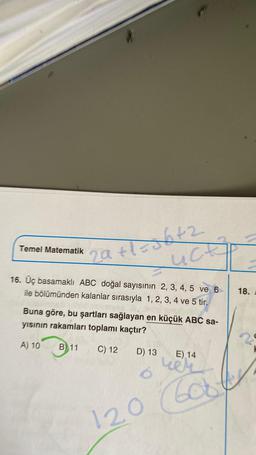 2a+1=3b+2
Temel Matematik
16. Üç basamaklı ABC doğal sayısının 2, 3, 4, 5 ve 6
ile bölümünden kalanlar sırasıyla 1, 2, 3, 4 ve 5 tir.
18.
Buna göre, bu şartları sağlayan en küçük ABC sa-
yısının rakamları toplamı kaçtır?
A) 10 B) 11 C) 12 D) 13 E) 14
120